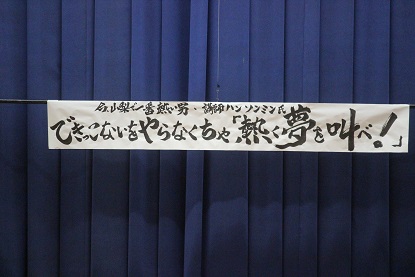 山梨で一番熱い男・講師ハン ソンミン氏
できっこないをやらなくちゃ「熱く夢を叫べ!」